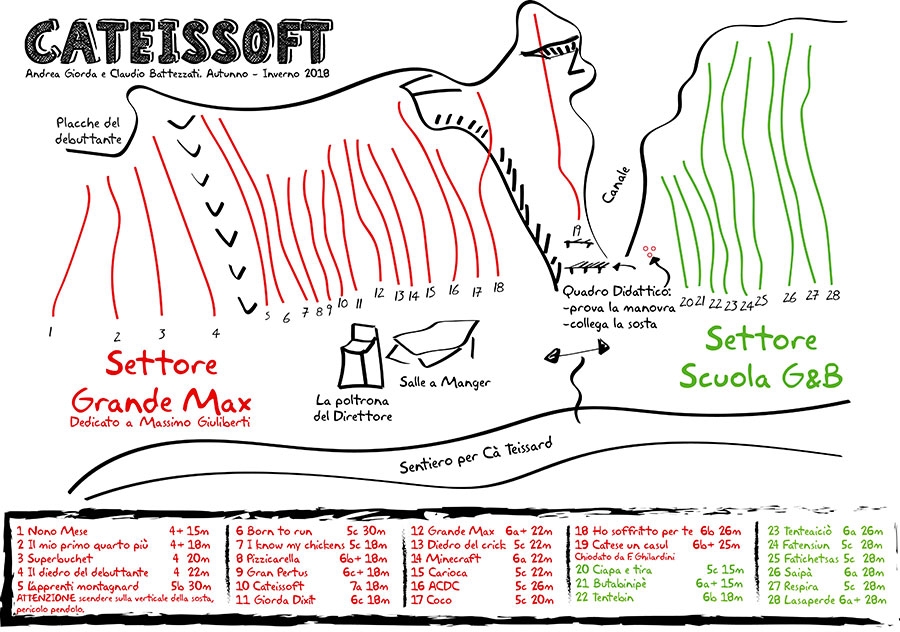 CATEISSOFT
Andrea Giorda e Claudio Battezzati. Autunno - Inverno 2018
Placche del
debuttante
Canale
19
1
2
3
4
5
6
7
8
9
10
11
12
13
14
15
16
17
18
Quadro Didattico:
-prova la manovra
-collega la sosta
20
21
22
23
24
25
26
27
28
Settore
Grande Max
Dedicato a Massimo Giuliberti
La poltrona
del Direttore
Salle a Manger
Settore
Scuola G&B
Sentiero per Cà Teissard
1 Nono Mese 4+ 15m
2 Il mio primo quarto più 4+ 18m
3 Superbuchet 4 20m
4 Il diedro del debuttante 4 22m
5 L'apprenti montagnard 5b 30m
ATTENZIONE: scendere sulla verticale della sosta,
pericolo pendolo.
6 Born to run 5c 30m
7 I know my chickens 5c 18m
8 Pizzicarella 6b+ 18m
9 Gran Pertus 6c+ 18m
10 Cateissoft 7a 18m
11 Giorda Dixit 6c 18m
12 Grande Max 6a+ 22m
13 Diedro del crick 5c 22m
14 Minecraft 6a 22m
15 Carioca 5c 22m
16 ACDC 5c 26m
17 Coco 5c 20m
18 Ho soffritto per te 6b 26m
19 Catese un casul 6b+ 25m
Chiodato da F. Ghilardini
20 Ciapa e tira 5c 15m
21 Butabinipè 6a+ 15m
22 Tentebin 6b 18m
23 Tenteaiciò 6a 26m
24 Fatensiun 5c 28m
25 Fatichetsas 5c 28m
26 Saipà 6a 28m
27 Respira 5c 28m
28 Lasaperde 6a+ 28m